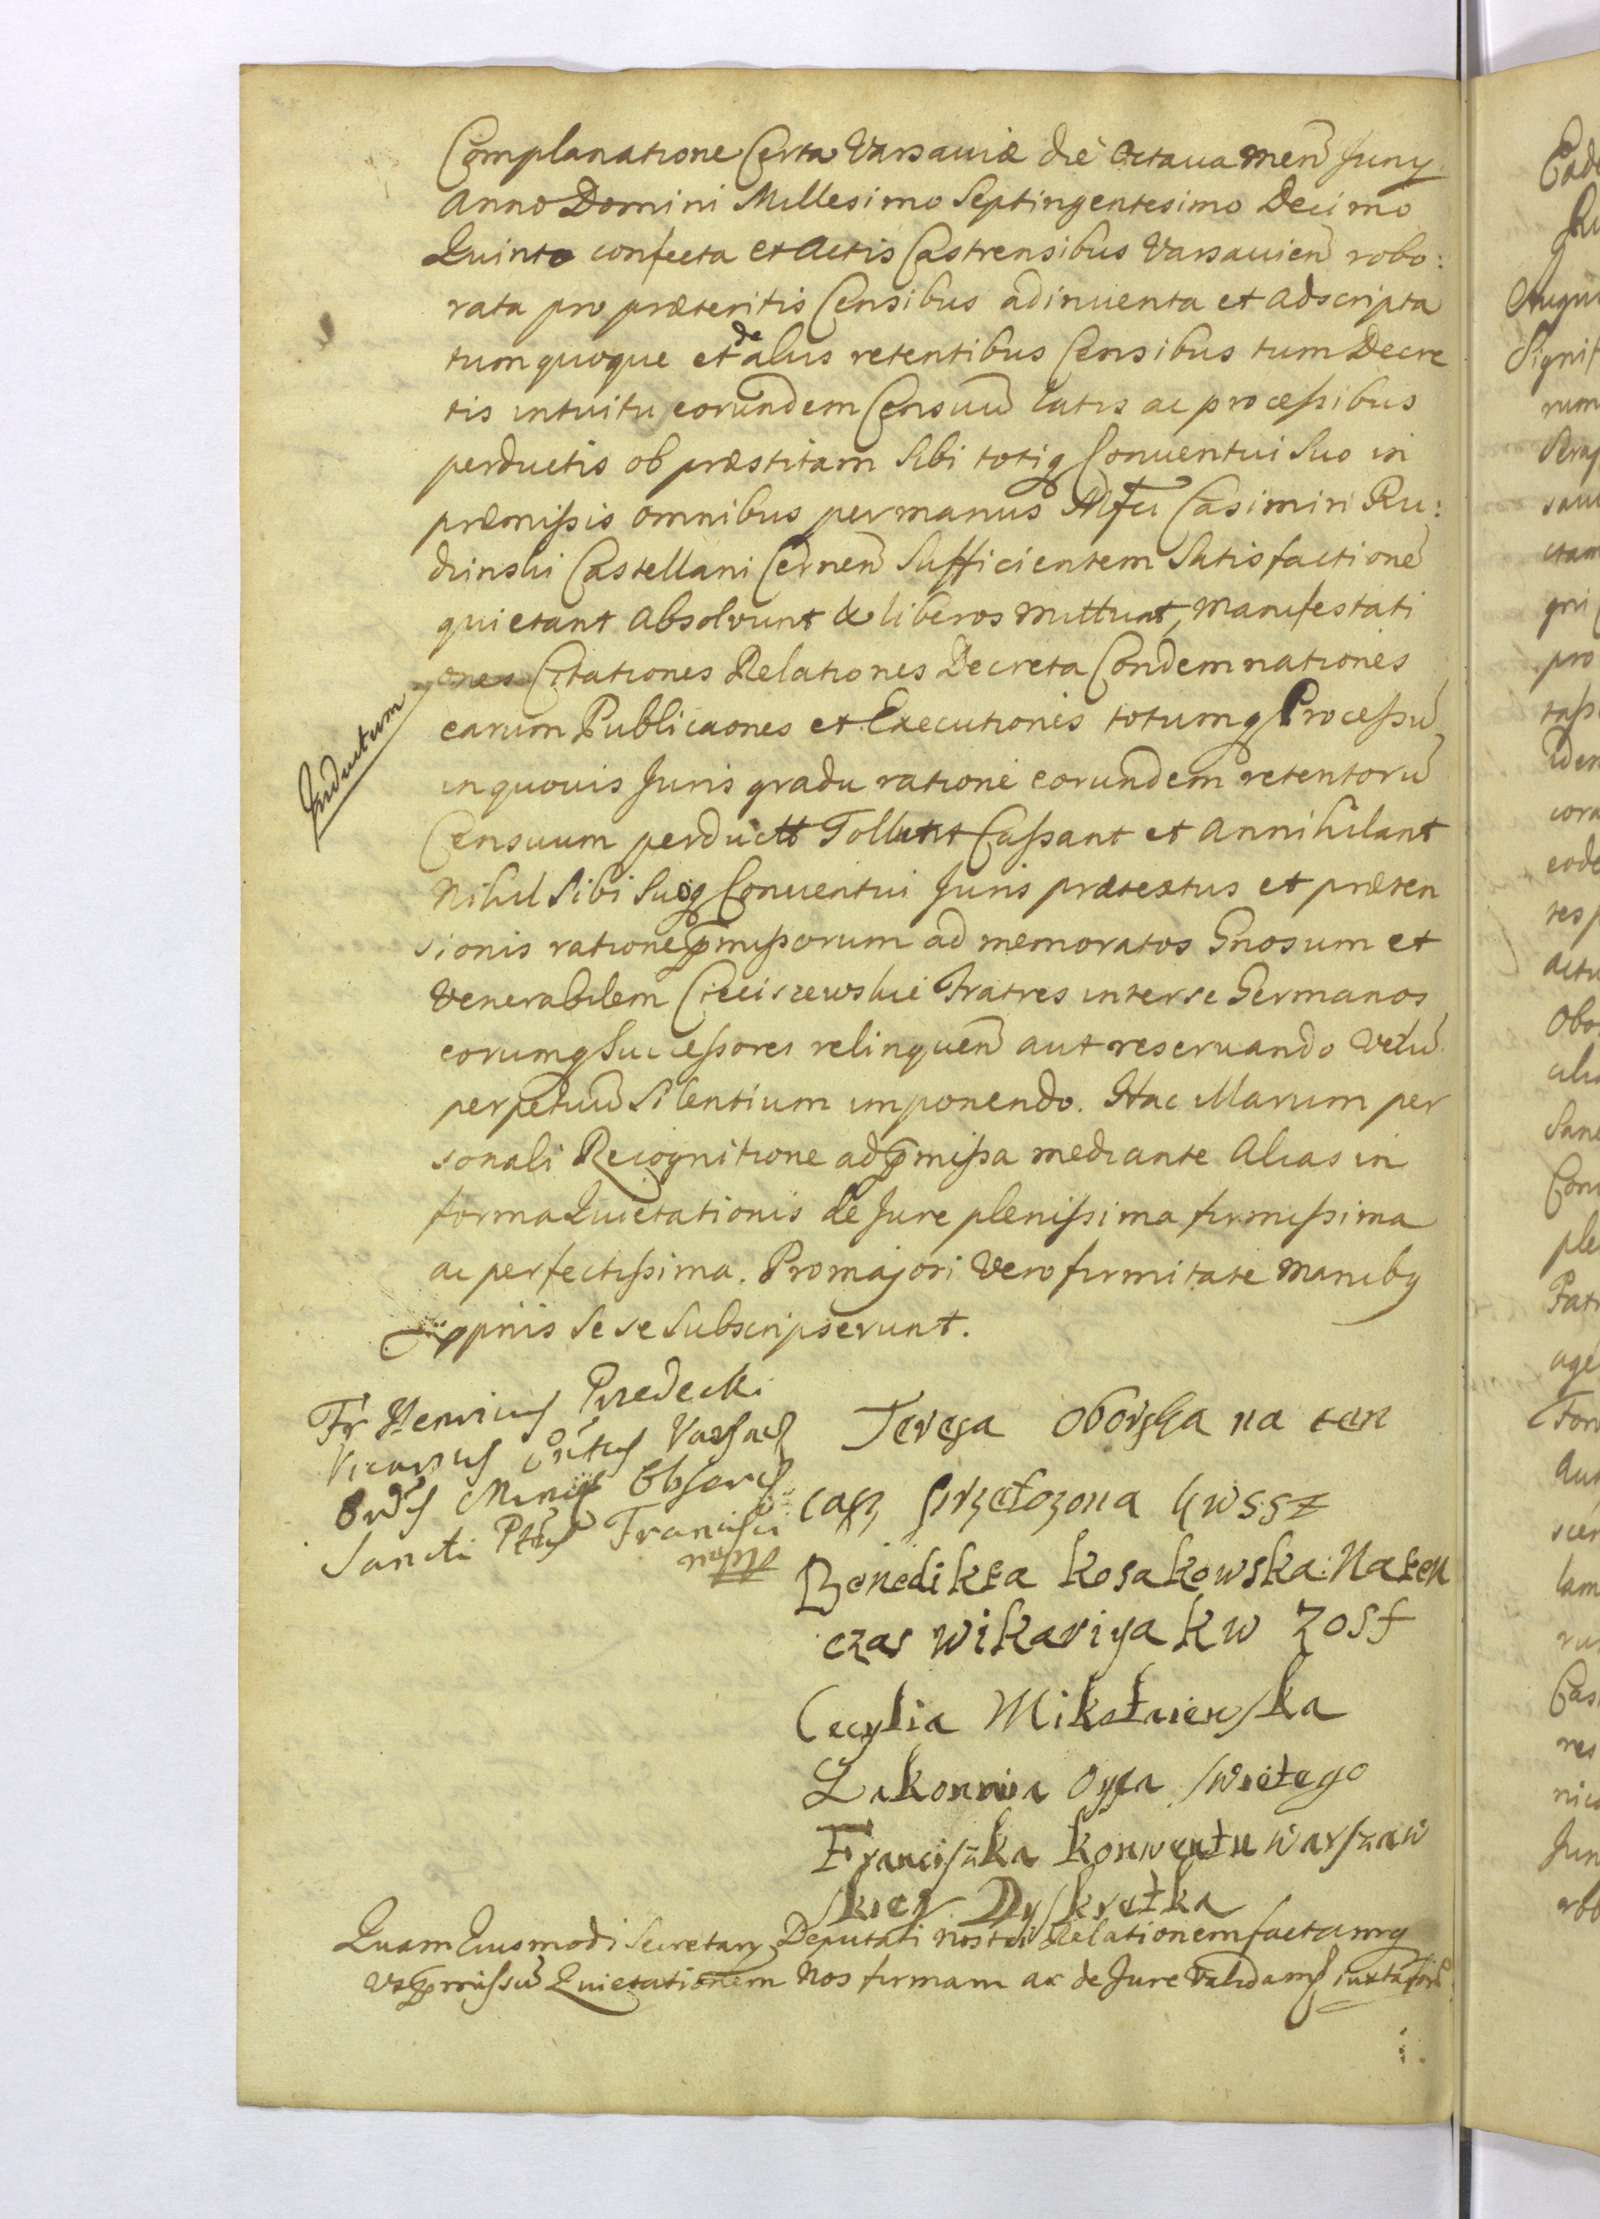 Complanatione Certa Varsauiæ die Octaua Men Juny
Anno Domini Millesimo Septingentesimo Decimo
Quinto confecta et Actis Castrensibus Varsauien robo:
rata pro præteritis Censibus adinuenta et adscripta
tum quoque et de alÿs retentibus Censibus tum Decre
tis intuitu eorundem Censuu latis ac processibus
perductis ob præstitam Sibi totiq Conuentui Suo in
præmissis omnibus per manus Casimiri Ru:
dzinski Castellani Cernen Sufficientem Satisfactione
quietant Absolvunt & liberos mittunt, Manifestati
ones Citationes Relationes Decreta Condemnationes
earum Publicaones et Executiones totumq Processu
in quouis Juris gradu ratione eorundem retentoru
Censuum Tollunt Cassant et Annihilant
Nihil Sibi Suoq Conuentui Juris prætextus et præten
sionis ratione pmissorum ad memoratos Gnosum et
Venerabilem Cieciszewskie Fratres inter se Germanos
eorumq Successores relinquen aut reseruando Velu
perpetuu Silentium imponendo. Hac illarum per
sonali Recognitione ad pmissa mediante Alias in
forma Quietationis de Jure plenissima firmissima
ac perfectissima. Pro majori Vero firmitate Manibq
ppriis Se se Subscripserunt.
Inductum
Fr Henricus
Sancti Francisci
Teresa Oborska na ten
casz przełozona
Benedikta kosakowska: Naten
czas wikariya k w Z O S f
Cecylia Mikołaiewska
Zakonnica Oyca swiętego
Franciszka konwentu warszaw
skieg Dyskretka
Quam Eiusmodi Secretary Deputati nostri Relationem factamq
Quietationem Nos firmam ac de Jure Validam